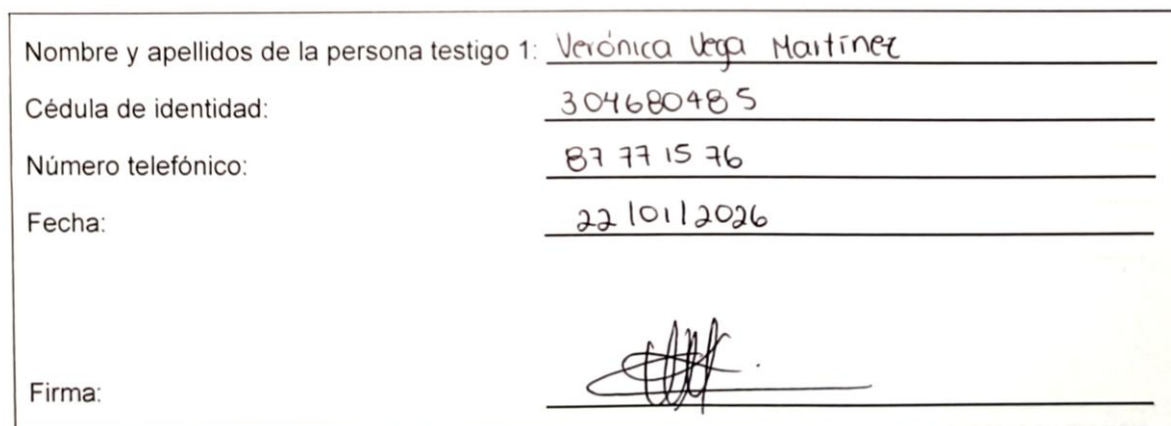 Nombre y apellidos de la persona testigo 1: Verónica Vega Martínez
Cédula de identidad: 304680485
Número telefónico: 87 77 15 76
Fecha: 22/01/2026
Firma: